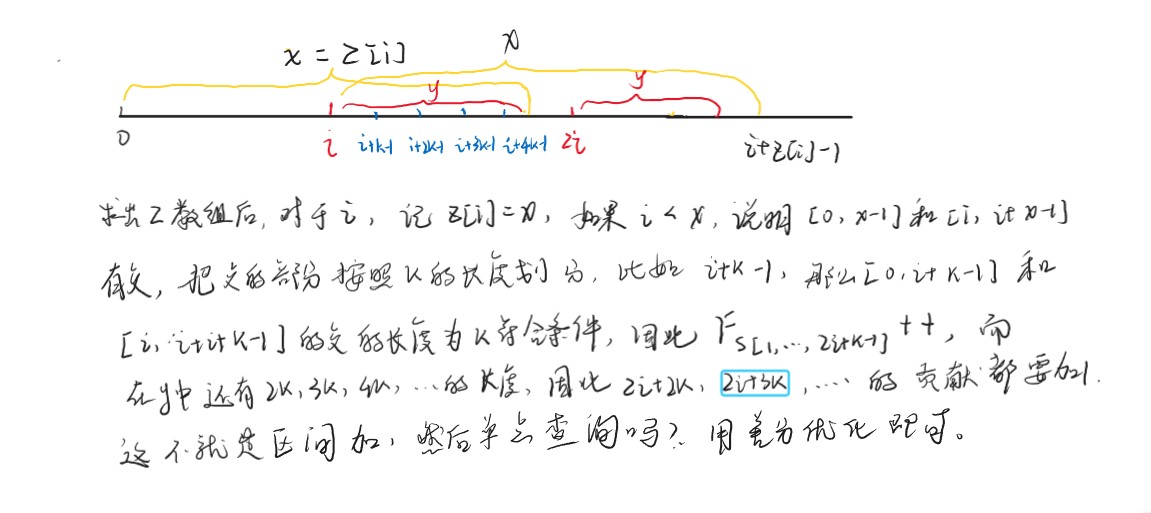 x = Z[i] x
y y
0 i i+k-1 i+2k-1 i+3k-1 i+4k-1 2i i+Z[i]-1
求出Z数组后, 对于 i, 记 Z[i]=x, 如果 i < x, 说明 [0, x-1] 和 [i, i+x-1]
有交, 把交的部分按照 K 的长度划分, 比如 i+K-1, 那么 [0, i+K-1] 和
[i, i+i+K-1] 的交的长度为 K 符合条件, 因此 F_{S[1,…,2i+K-1]}++, 而
在 y 中还有 2K, 3K, 4K, … 的长度, 因此 2i+2K, 2i+3K, … 的贡献都要加1.
这不就是区间加, 然后单点查询吗? 用差分优化即可。